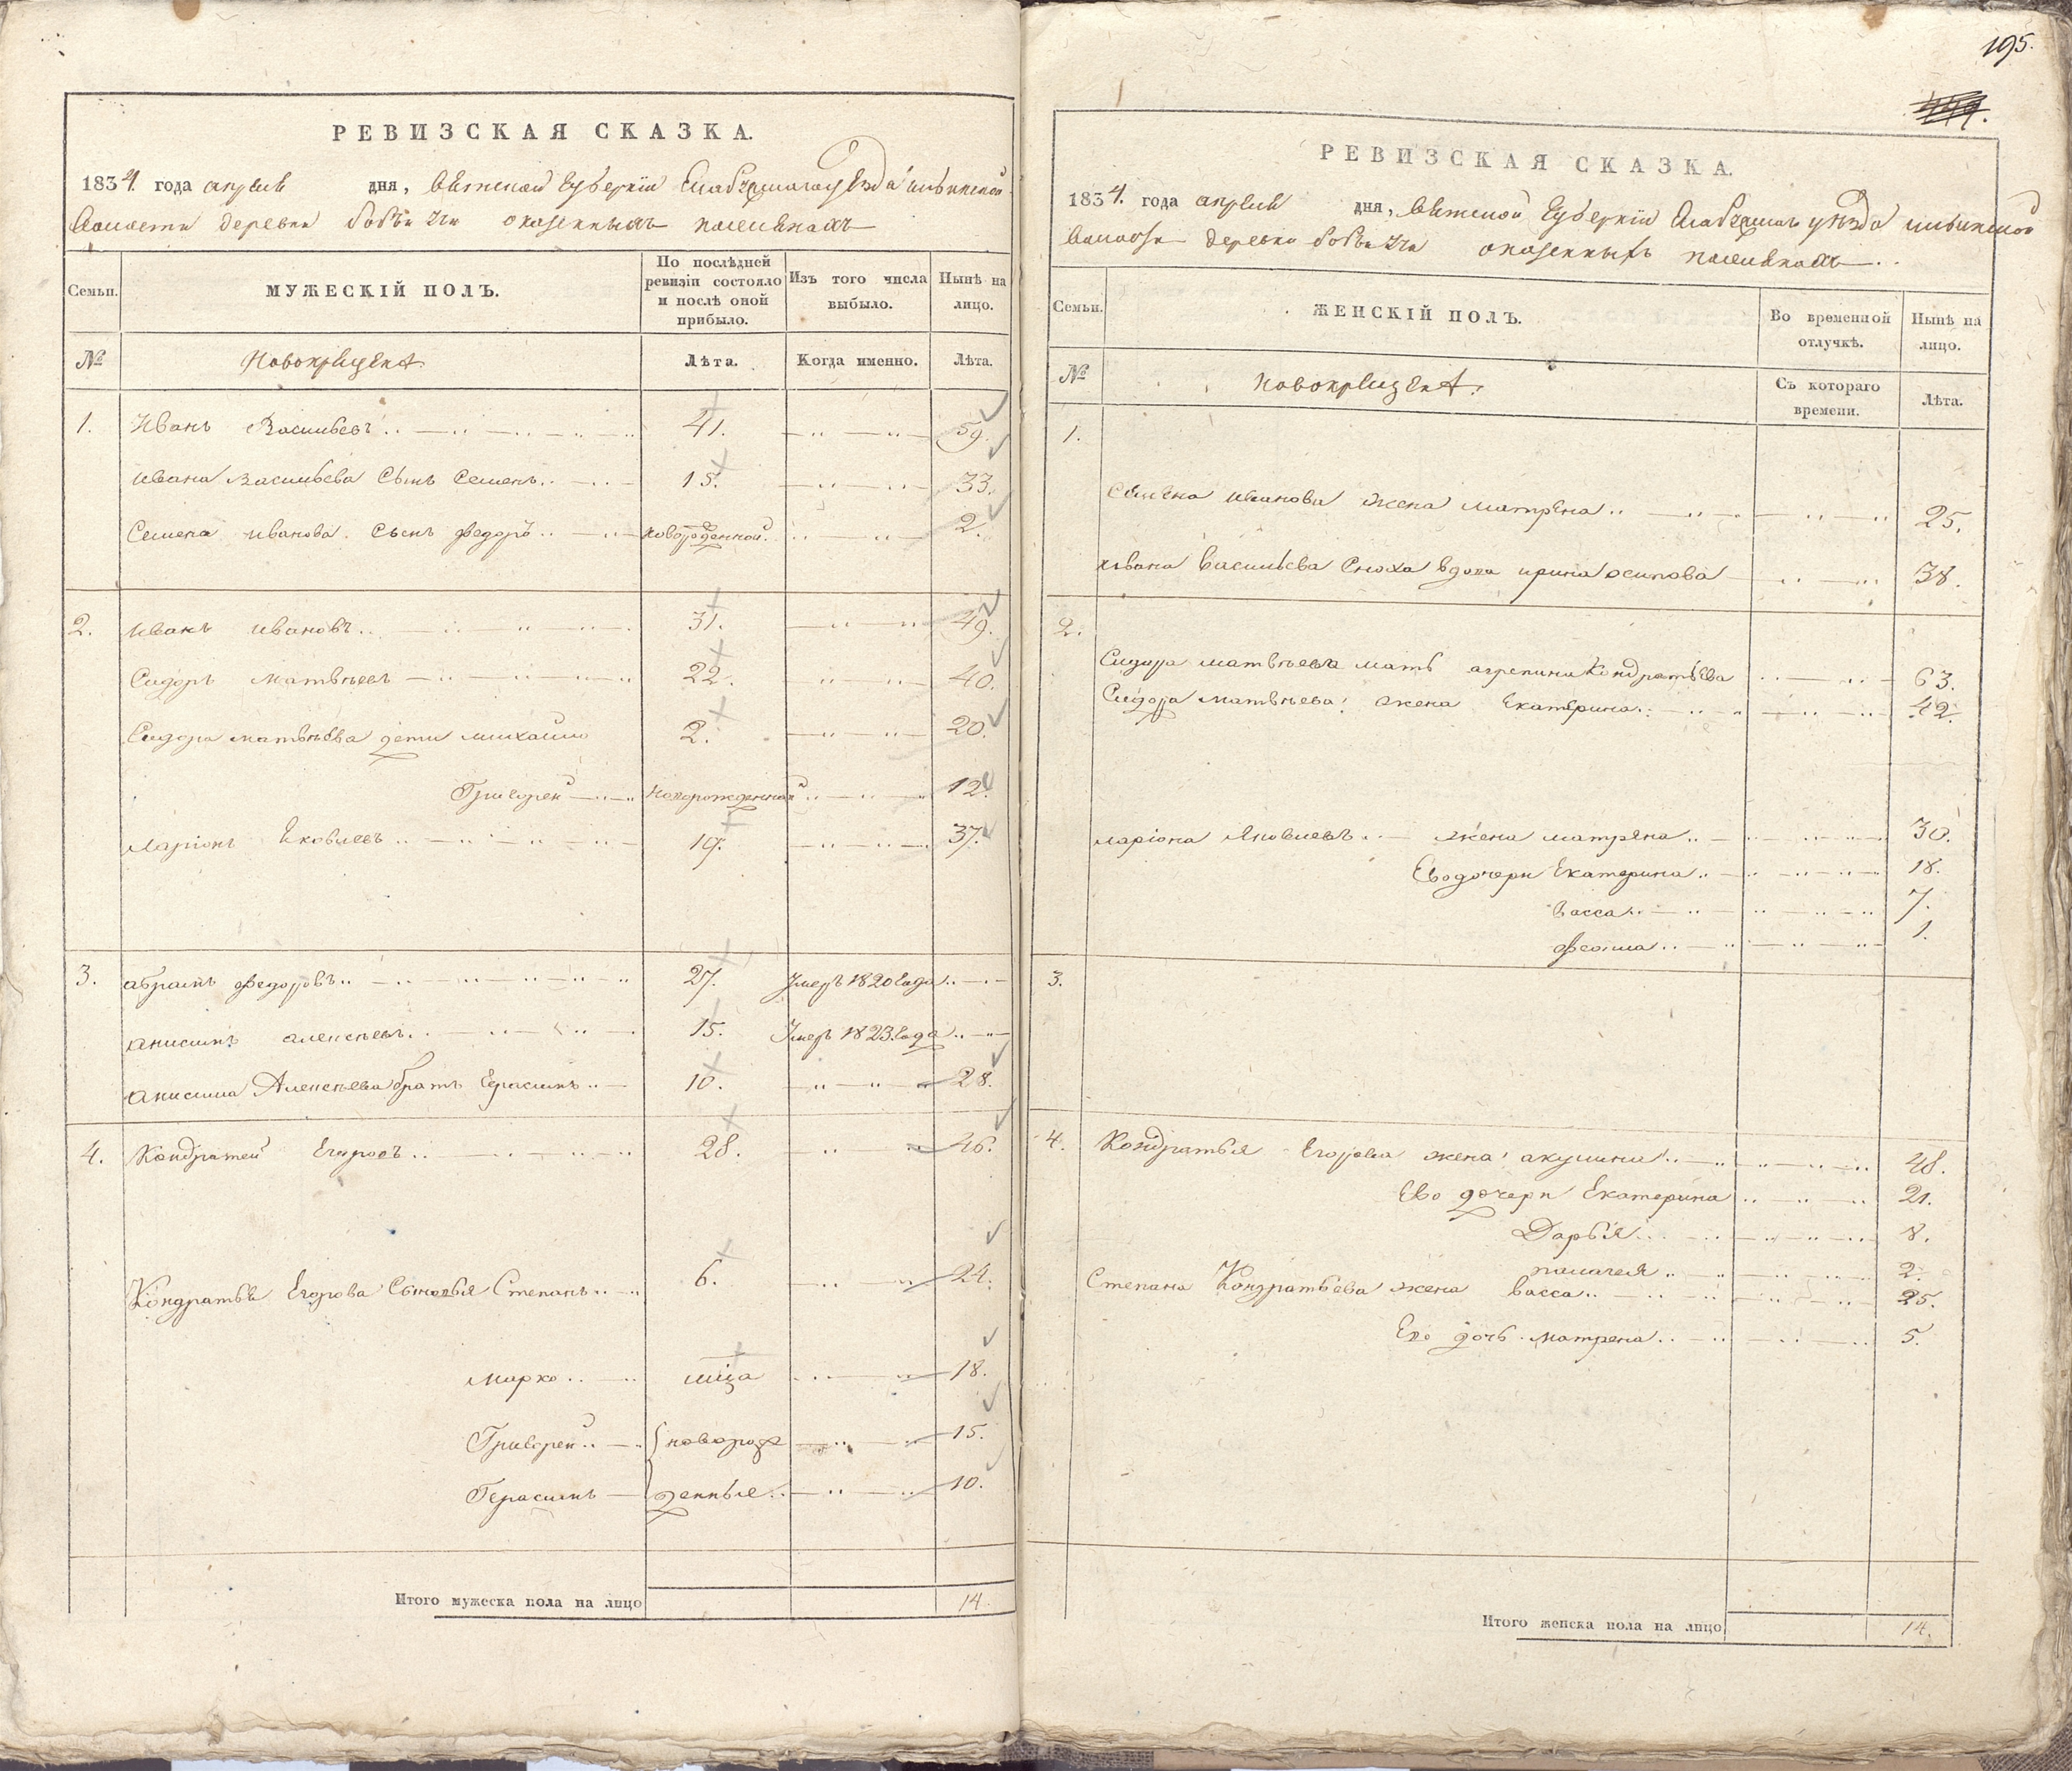 РЕВИЗСКАЯ СКАЗКА.
1834. года апреля дня, Вятской Губернiи Елабужскаго уезда ильинской
Волости деревни бобьи учи оказенныхъ поселянахъ
Семьи.
МУЖЕСКIЙ ПОЛЪ.
По послѣдней ревизiи состояло и послѣ оной прибыло.
Изъ того числа выбыло.
Нынѣ на лицо.
№
Новокрещена.
Лѣта.
Когда именно.
Лѣта.
1. Иванъ Васильевъ 41. 59.
Ивана Васильева Сынъ Семенъ 15. 33.
Семена иванова Сынъ Федоръ новорожденной. 2.
2. Иванъ ивановъ 31. 49.
Сидоръ матвѣевъ 22. 40.
Сидора матвѣева дети михайло 2. 20.
Григорей новорожденной 12.
Ларiонъ Яковлевъ 19. 37.
3. абрамъ Федоровъ 27. Умеръ 1820 года
анисимъ алексѣевъ 15. Умеръ 1823 года
анисима Алексѣева братъ Герасимъ 10. 28.
4. Кондратей Егоровъ 28. 46.
Кондратья Егорова Сыновья Степанъ 6. 24.
Марко мца 18.
Григорей новорож 15.
Герасимъ денные 10.
Итого мужеска пола на лицо 14.
195.
РЕВИЗСКАЯ СКАЗКА.
1834. года апреля дня, Вятской Губернiи Елабужскаго уѣзда ильинской
Волости деревни бобьи учи оказенныхъ поселянахъ
Семьи.
ЖЕНСКIЙ ПОЛЪ.
Во временной отлучкѣ.
Нынѣ на лицо.
№
Новокрещена.
Съ котораго времени.
Лѣта.
1.
Семена иванова жена матрена 25.
Ивана Васильева Сноха вдова ирина осипова 38.
2.
Сидора матвѣева мать агрепина Кондратьева 63.
Сидора матвѣева жена Екатерина 42.
Ларiона Яковлевъ жена матрена 30.
Ево дочери Екатерина 18.
васса 7.
1.
3.
4. Кондратья Егорова жена акулина 48.
Ево дочери Екатерина 21.
Дарья 8.
палагея 2.
Степана Кондратьева жена васса 25.
Ево дочь матрена 5.
Итого женска пола на лицо 14.